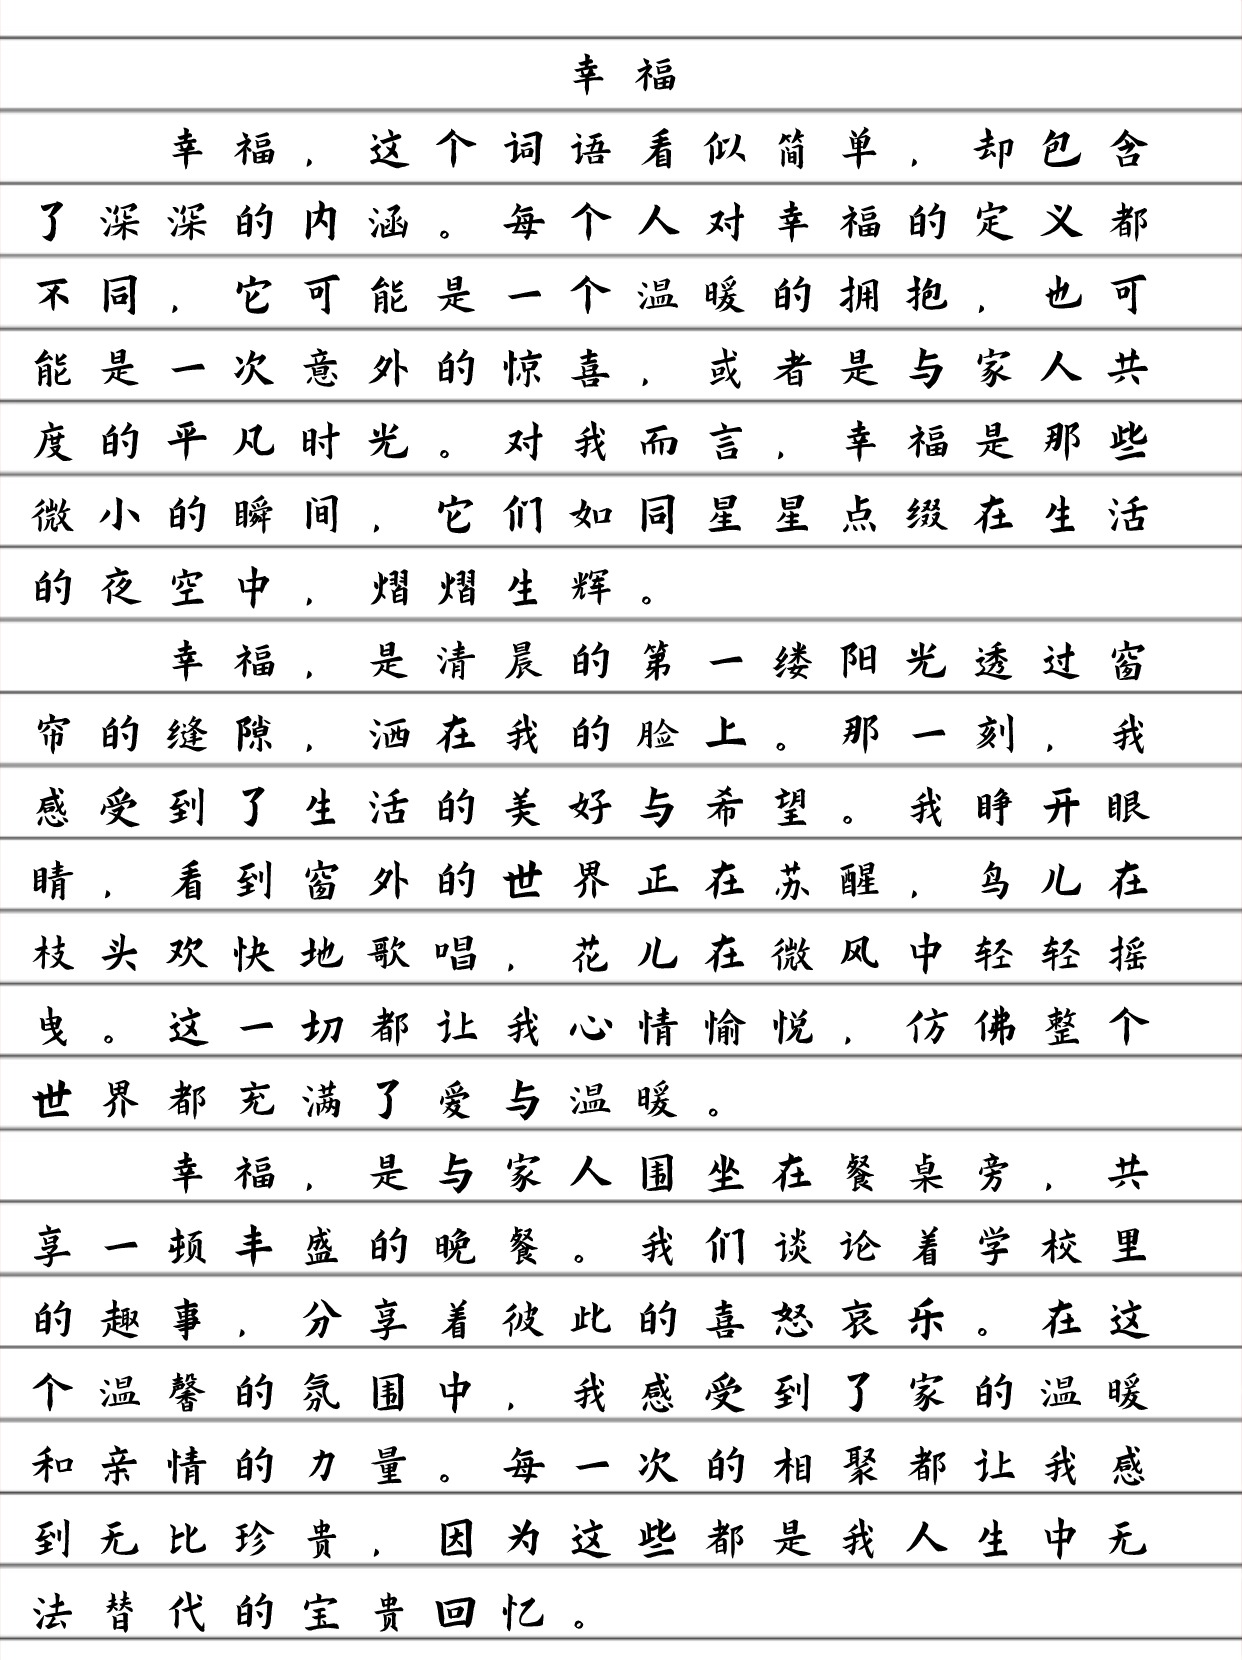 幸福
幸福，这个词语看似简单，却包含
了深深的内涵。每个人对幸福的定义都
不同，它可能是一个温暖的拥抱，也可
能是一次意外的惊喜，或者是与家人共
度的平凡时光。对我而言，幸福是那些
微小的瞬间，它们如同星星点缀在生活
的夜空中，熠熠生辉。
幸福，是清晨的第一缕阳光透过窗
帘的缝隙，洒在我的脸上。那一刻，我
感受到了生活的美好与希望。我睁开眼
睛，看到窗外的世界正在苏醒，鸟儿在
枝头欢快地歌唱，花儿在微风中轻轻摇
曳。这一切都让我心情愉悦，仿佛整个
世界都充满了爱与温暖。
幸福，是与家人围坐在餐桌旁，共
享一顿丰盛的晚餐。我们谈论着学校里
的趣事，分享着彼此的喜怒哀乐。在这
个温馨的氛围中，我感受到了家的温暖
和亲情的力量。每一次的相聚都让我感
到无比珍贵，因为这些都是我人生中无
法替代的宝贵回忆。